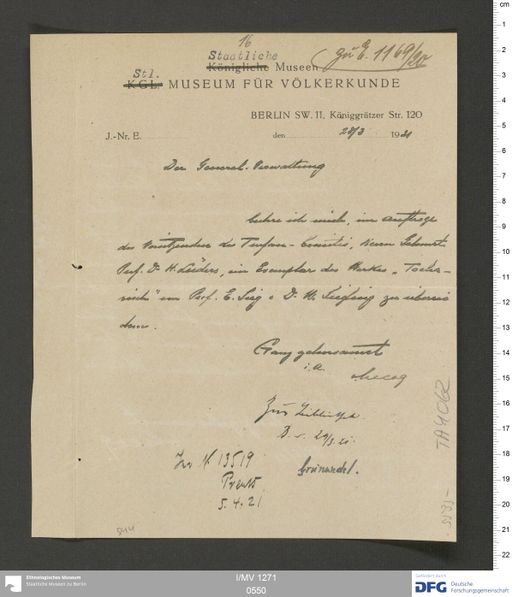 16
Staatliche
Königliche Museen
zu E. 1169/20
Stl.
KGL. MUSEUM FÜR VÖLKERKUNDE
BERLIN SW. 11, Königgrätzer Str. 120
J.-Nr. E. den 28/3 1921
Der General-Verwaltung
beehre ich mich, im Auftrage
des Vorsitzenden des Turfan-Comités, Herrn Geheimrat
Prof. Dr. H. Lüders, ein Exemplar des Werkes „Tocha-
risch" von Prof. E. Sieg u Dr. W. Siegling zu übersen
den.
Ganz gehorsamst
i. A.
Zur Bibliothek
B. 29/3. 21.
Grünwedel.
Inv N 13519
5. 4. 21
TA4062
544
Ethnologisches Museum
Staatliche Museen zu Berlin
I/MV 1271
0550
Gefördert durch
DFG Deutsche
Forschungsgemeinschaft
cm
1
2
3
4
5
6
7
8
9
10
11
12
13
14
15
16
17
18
19
20
21
22